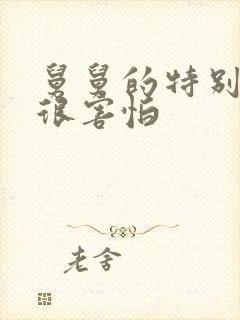 舅舅的特别
很害怕
老舍